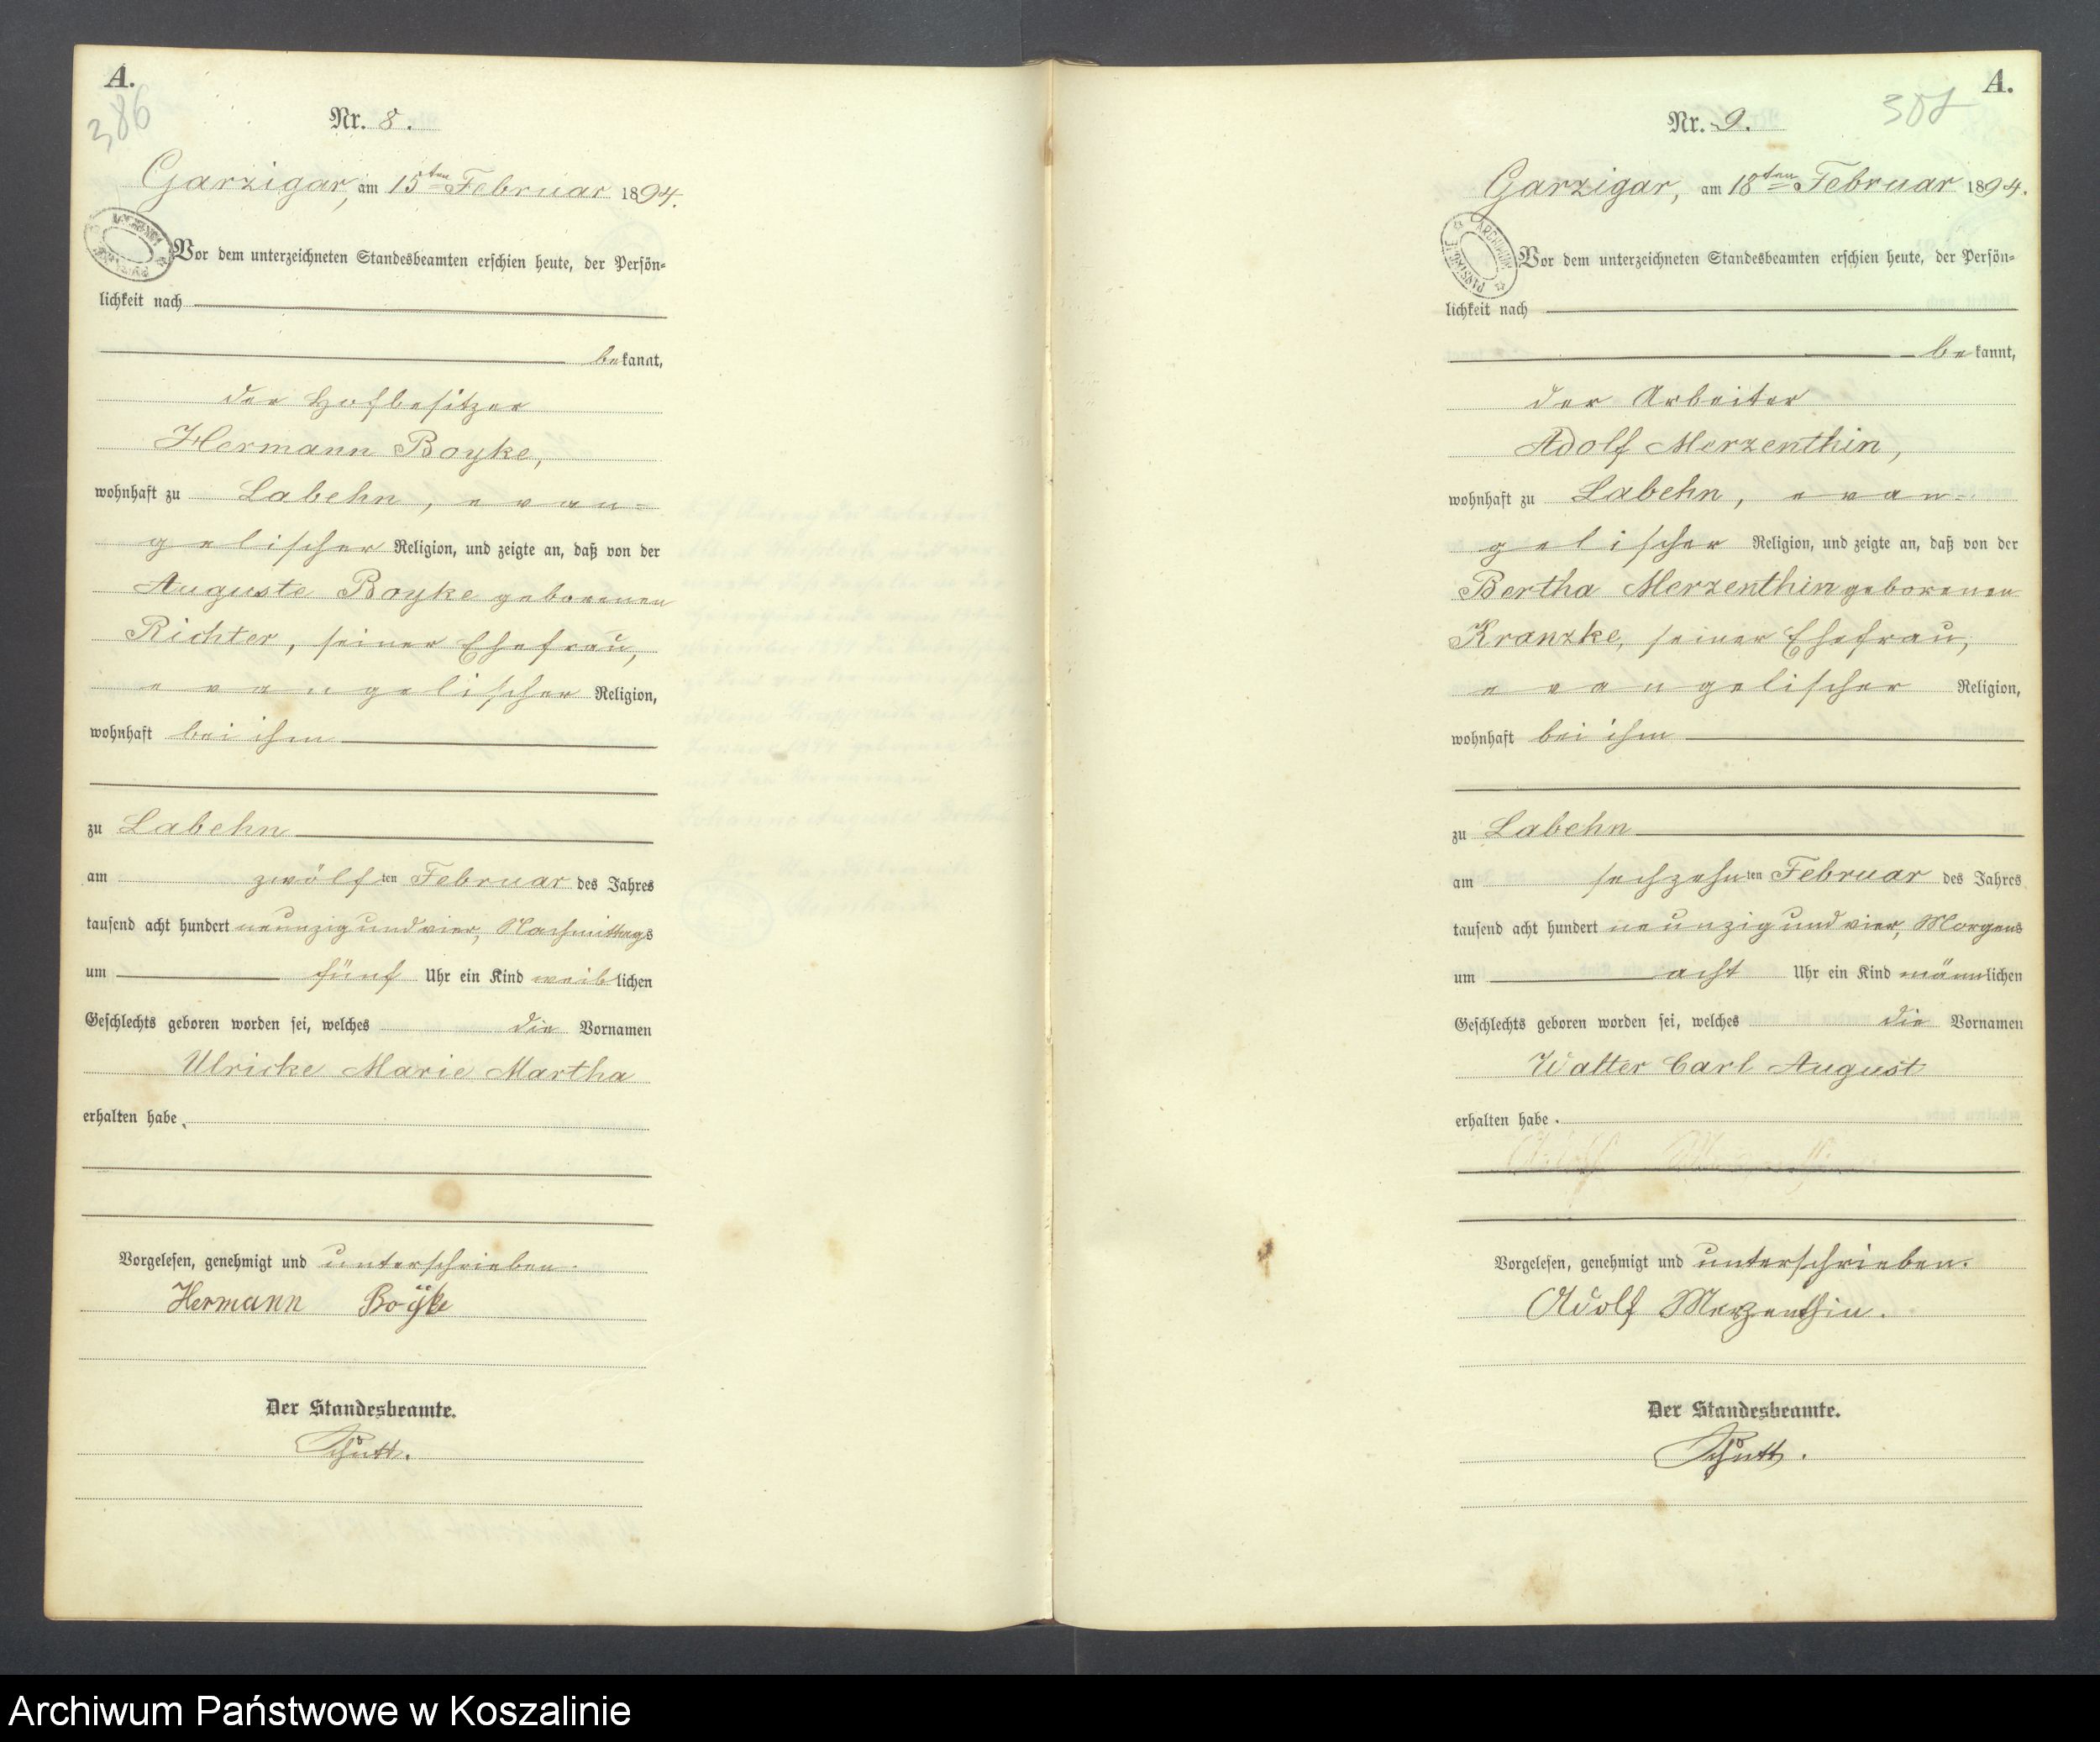 A.
386
Nr. 8.
Garzigar, am 15ten Februar 1894.
Vor dem unterzeichneten Standesbeamten erschien heute, der Persön=
lichkeit nach
bekannt,
der Hofbesitzer
Hermann Boyke,
wohnhaft zu Labehn, evan=
gelischer Religion, und zeigte an, daß von der
Auguste Boyke geborenen
Richter, seiner Ehefrau,
evangelischer Religion,
wohnhaft bei ihm
zu Labehn
am zwölften Februar des Jahres
tausend acht hundert neunzig und vier, Nachmittags
um fünf Uhr ein Kind weiblichen
Geschlechts geboren worden sei, welches die Vornamen
Ulricke Marie Martha
erhalten habe.
Vorgelesen, genehmigt und unterschrieben.
Hermann Boÿke
Der Standesbeamte.
Schütt.
A.
Nr. 9.
Garzigar, am 18ten Februar 1894.
ARCHIWUM PAŃSTWOWE
Vor dem unterzeichneten Standesbeamten erschien heute, der Persön=
lichkeit nach
bekannt,
der Arbeiter
Adolf Merzenthin,
wohnhaft zu Labehn, evan=
gelischer Religion, und zeigte an, daß von der
Bertha Merzenthin geborenen
Kranzke, seiner Ehefrau,
evangelischer Religion,
wohnhaft bei ihm
zu Labehn
am sechzehnten Februar des Jahres
tausend acht hundert neunzig und vier, Morgens
um acht Uhr ein Kind männlichen
Geschlechts geboren worden sei, welches die Vornamen
Walter Carl August
erhalten habe.
Vorgelesen, genehmigt und unterschrieben.
Adolf Merzenthin.
Der Standesbeamte.
Schütt.
Archiwum Państwowe w Koszalinie